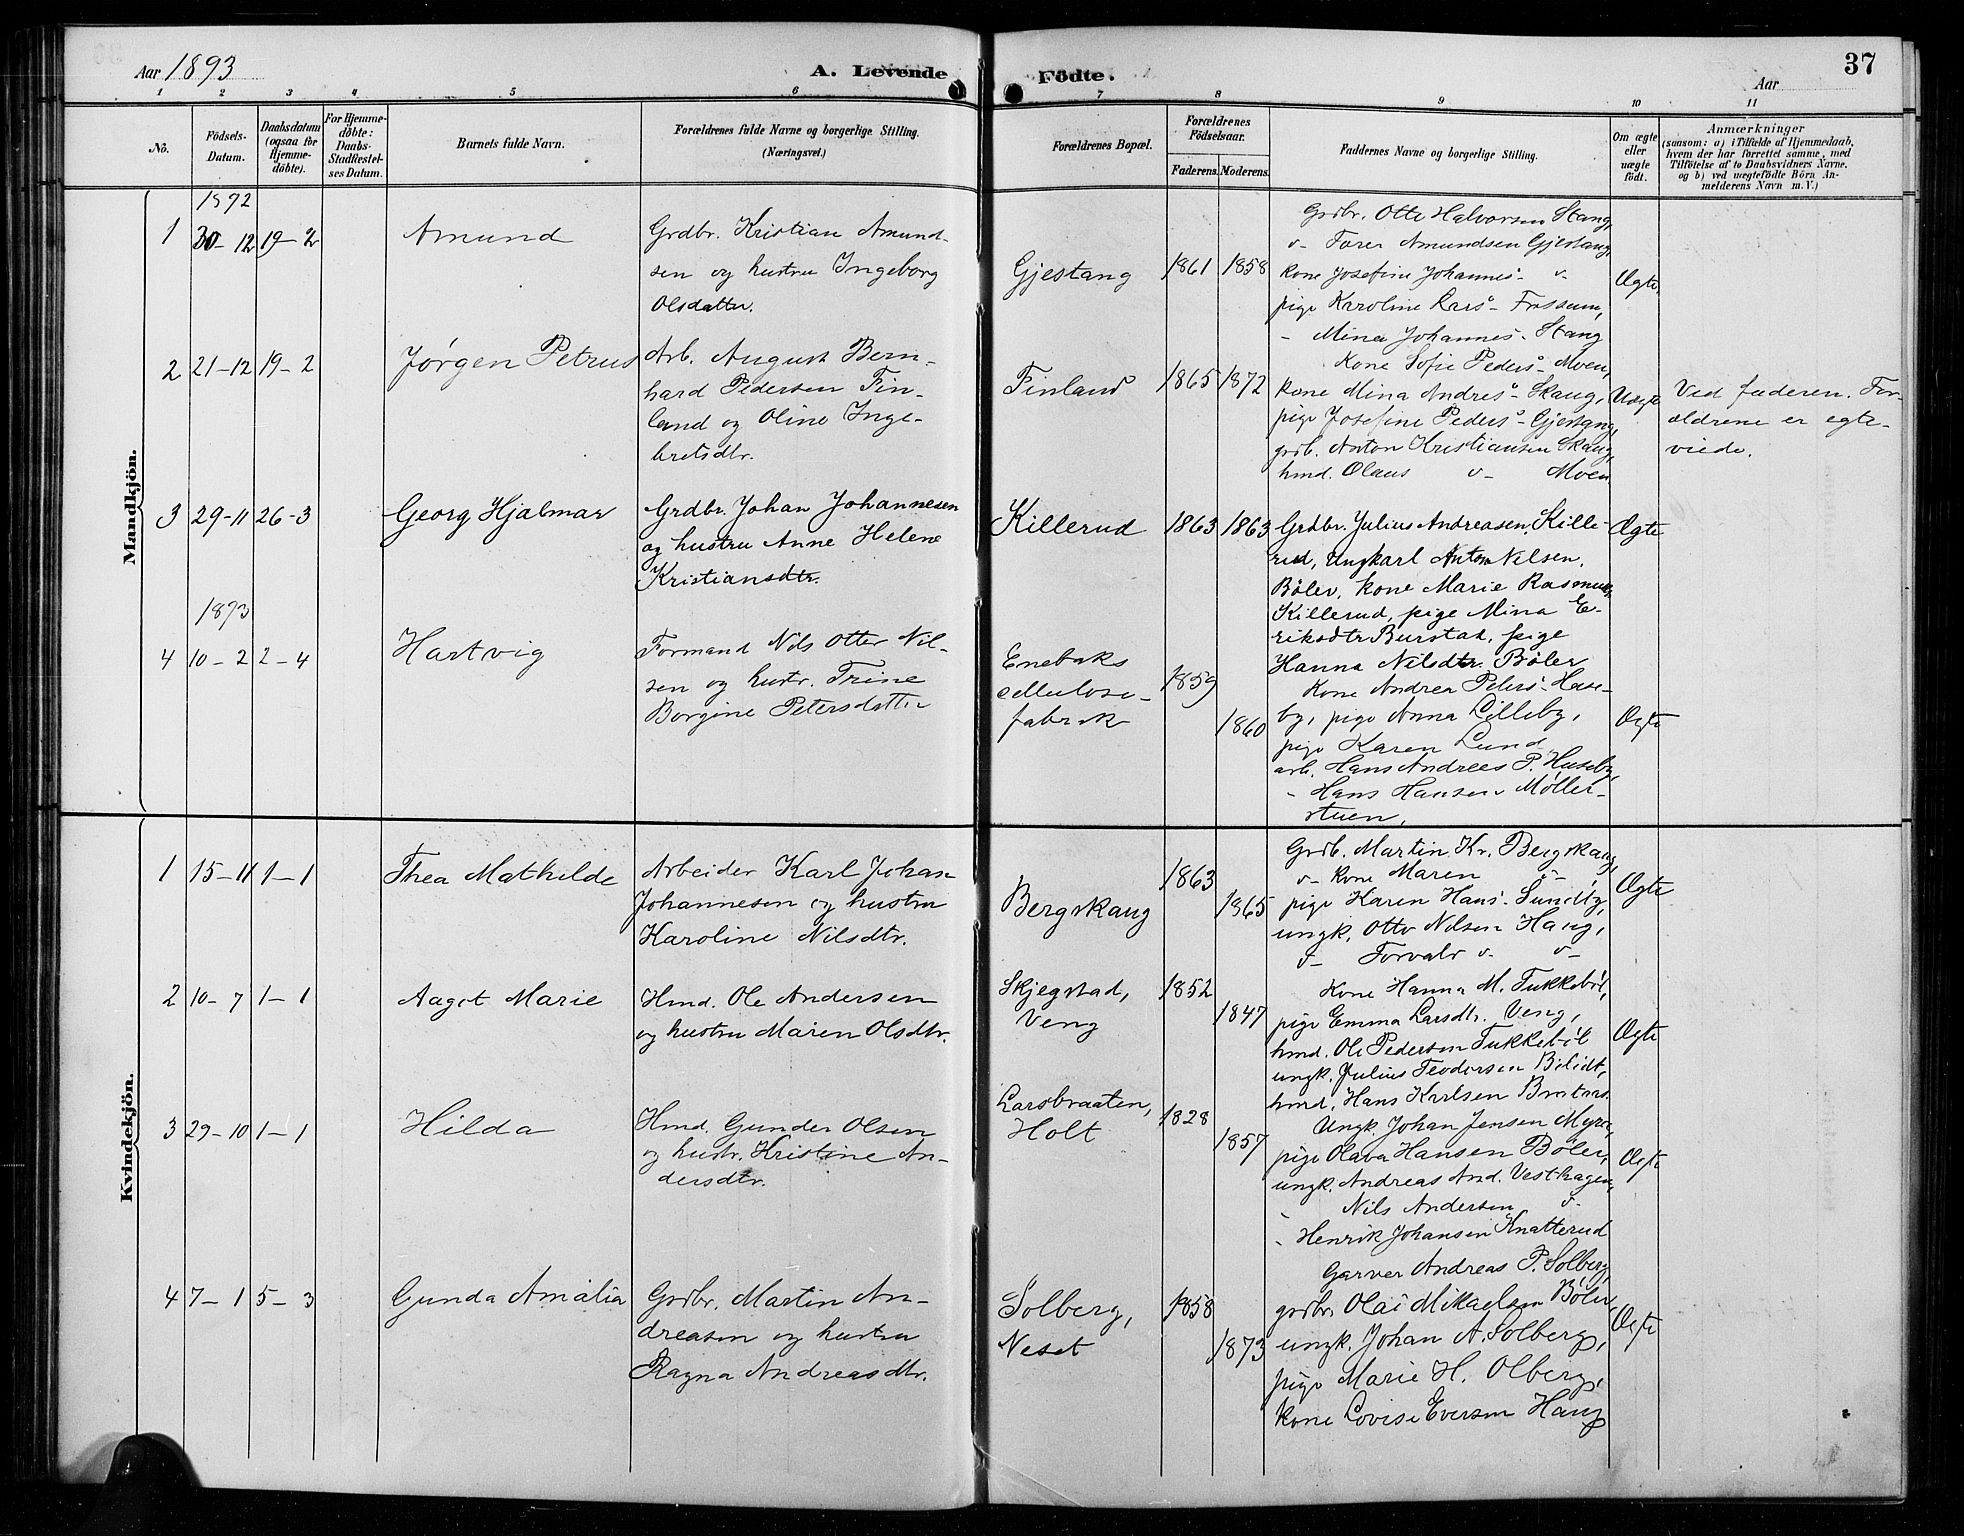 Aar 1893
A. Levende Födte.
37
Aar
1 2 3 4 5 6 7 8 9 10 11
No.
Födsels-
Datum.
Daabsdatum
(ogsaa for
Hjemme-
döbte).
For Hjemme-
döbte:
Daabs-
Stadfæstel-
ses Datum.
Barnets fulde Navn.
Forældrenes fulde Navne og borgerlige Stilling.
(Næringsvei.)
Forældrenes Bopæl.
Forældrenes
Födselsaar.
Faderens. Moderens.
Faddernes Navne og borgerlige Stilling.
Om ægte
eller
uægte
födt.
Anmærkninger
(saasom: a) i Tilfælde af Hjemmedaab,
hvem der har forrettet samme, med
Tilföielse af to Daabsvidners Navne.
og b) ved uægtefödte Börn An-
melderens Navn m. V.)
Mandkjön.
1892
1 30-12 19-2
Amund
Grdbr. Kristian Amund-
sen og hustru Ingeborg
Olsdatter.
Gjestang
1861 1858
Grdbr. Otto Halvorsen Stang,
v- Torer Amundsen Gjestang,
kone Josefine Johannes- v-
pige Karoline Lars- Fossum,
- Mina Johannes- Stang
Ægte.
2 21-12 19-2
Jørgen Petrus
Arb. August Bern-
hard Pedersen Fin-
land og Oline Inge-
bretsdtr.
Finland
1865 1872
Kone Sofie Peders- Moen,
kone Mina Andres- Skaug,
pige Josefine Peders- Gjestang,
grb. Anton Kristiansen Skaug,
hmd. Olaus v- Moen
Uægte
Ved faderen. For-
ældrene er egte-
viede.
3 29-11 26-3
Georg Hjalmar
Grdbr. Johan Johannesen
og hustru Anne Helene
Kristiansdtr.
Killerud
1863 1863
Grdbr. Julius Andreasen, Kille-
rud, Ungkarl Anton Nilsen,
Bøler, kone Marie Rasmus,
Killerud, pige Mina E-
riksdtr Burstad, pige
Hanna Nilsdtr. Bøler
Ægte
1893
4 10-2 2-4
Hartvig
Formand Nils Otter Nil-
sen og hustr. Trine
Borgine Petersdatter
Enebaks
cellulose-
fabrik
1859
1860
Kone Andrea Peters- Huse-
by, pige Anna Lilleby,
pige Karen Lund
arb. Hans Andreas P. Huseby,
- Hans Hansen Møller-
stuen.
Ægte
Kvindekjön.
1 15-11 1-1
Thea Mathilde
Arbeider Karl Johan
Johannesen og hustru
Karoline Nilsdtr.
Bergskaug
1863
1865
Grdb. Martin Kr. Bergskaug,
v- kone Maren v-
pige Karen Hans- Sundby,
ungk. Otto Nilsen Haug,
v- Torvald v- v-
Ægte
2 10-7 1-1
Aagot Marie
Hmd. Ole Andersen
og hustru Maren Olsdtr.
Skjegstad,
Veng
1852
1847
Kone Hanna M. Tukkebøl,
pige Emma Larsdtr. Veng,
hmd. Ole Pedersen Tukkebøl
ungk. Julius Teodorsen Bilidt,
hmd. Hans Karlsen
Ægte
3 29-10 1-1
Hilda
Hmd. Gunder Olsen
og hustr. Kristine An-
dersdtr.
Larsbraaten,
Holt
1828
1857
Ungk Johan Jensen Myra,
pige Olava Hansen Bøler,
ungk. Andreas And. Vesthagen,
- Nils Andersen v-
- Henrik Johansen Knatterud
Ægte
4 7-1 5-3
Gunda Amalia
Grdbr. Martin An-
dreasen og hustru
Ragna Andreasdtr.
Solberg,
Neset
1858
1873
Garver Andreas P. Solberg,
grdbr. Olai Mikaelsen Bøler,
ungk. Johan A. Solberg,
pige Marie H. Olberg,
kone Lovise Eversen Haug
Ægte